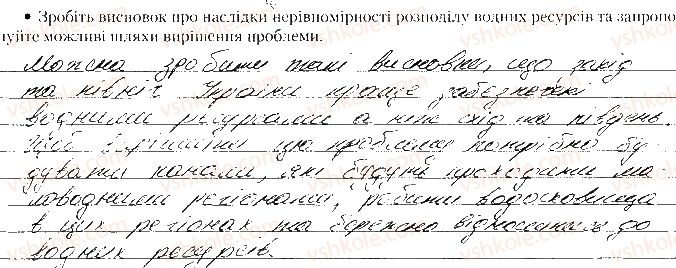 • Зробіть висновок про наслідки нерівномірності розподілу водних ресурсів та запропо
нуйте можливі шляхи вирішення проблеми.
Можна зробити такі висновки, що захід
та північ України краще забезпечені
водними ресурсами а ніж схід та південь.
Щоб вирішити цю проблему потрібно бу
дувати канали, які будуть проходити ма
ловодними регіонами, робити водосховища
в цих регіонах та бережно відноситися до
водних ресурсів.